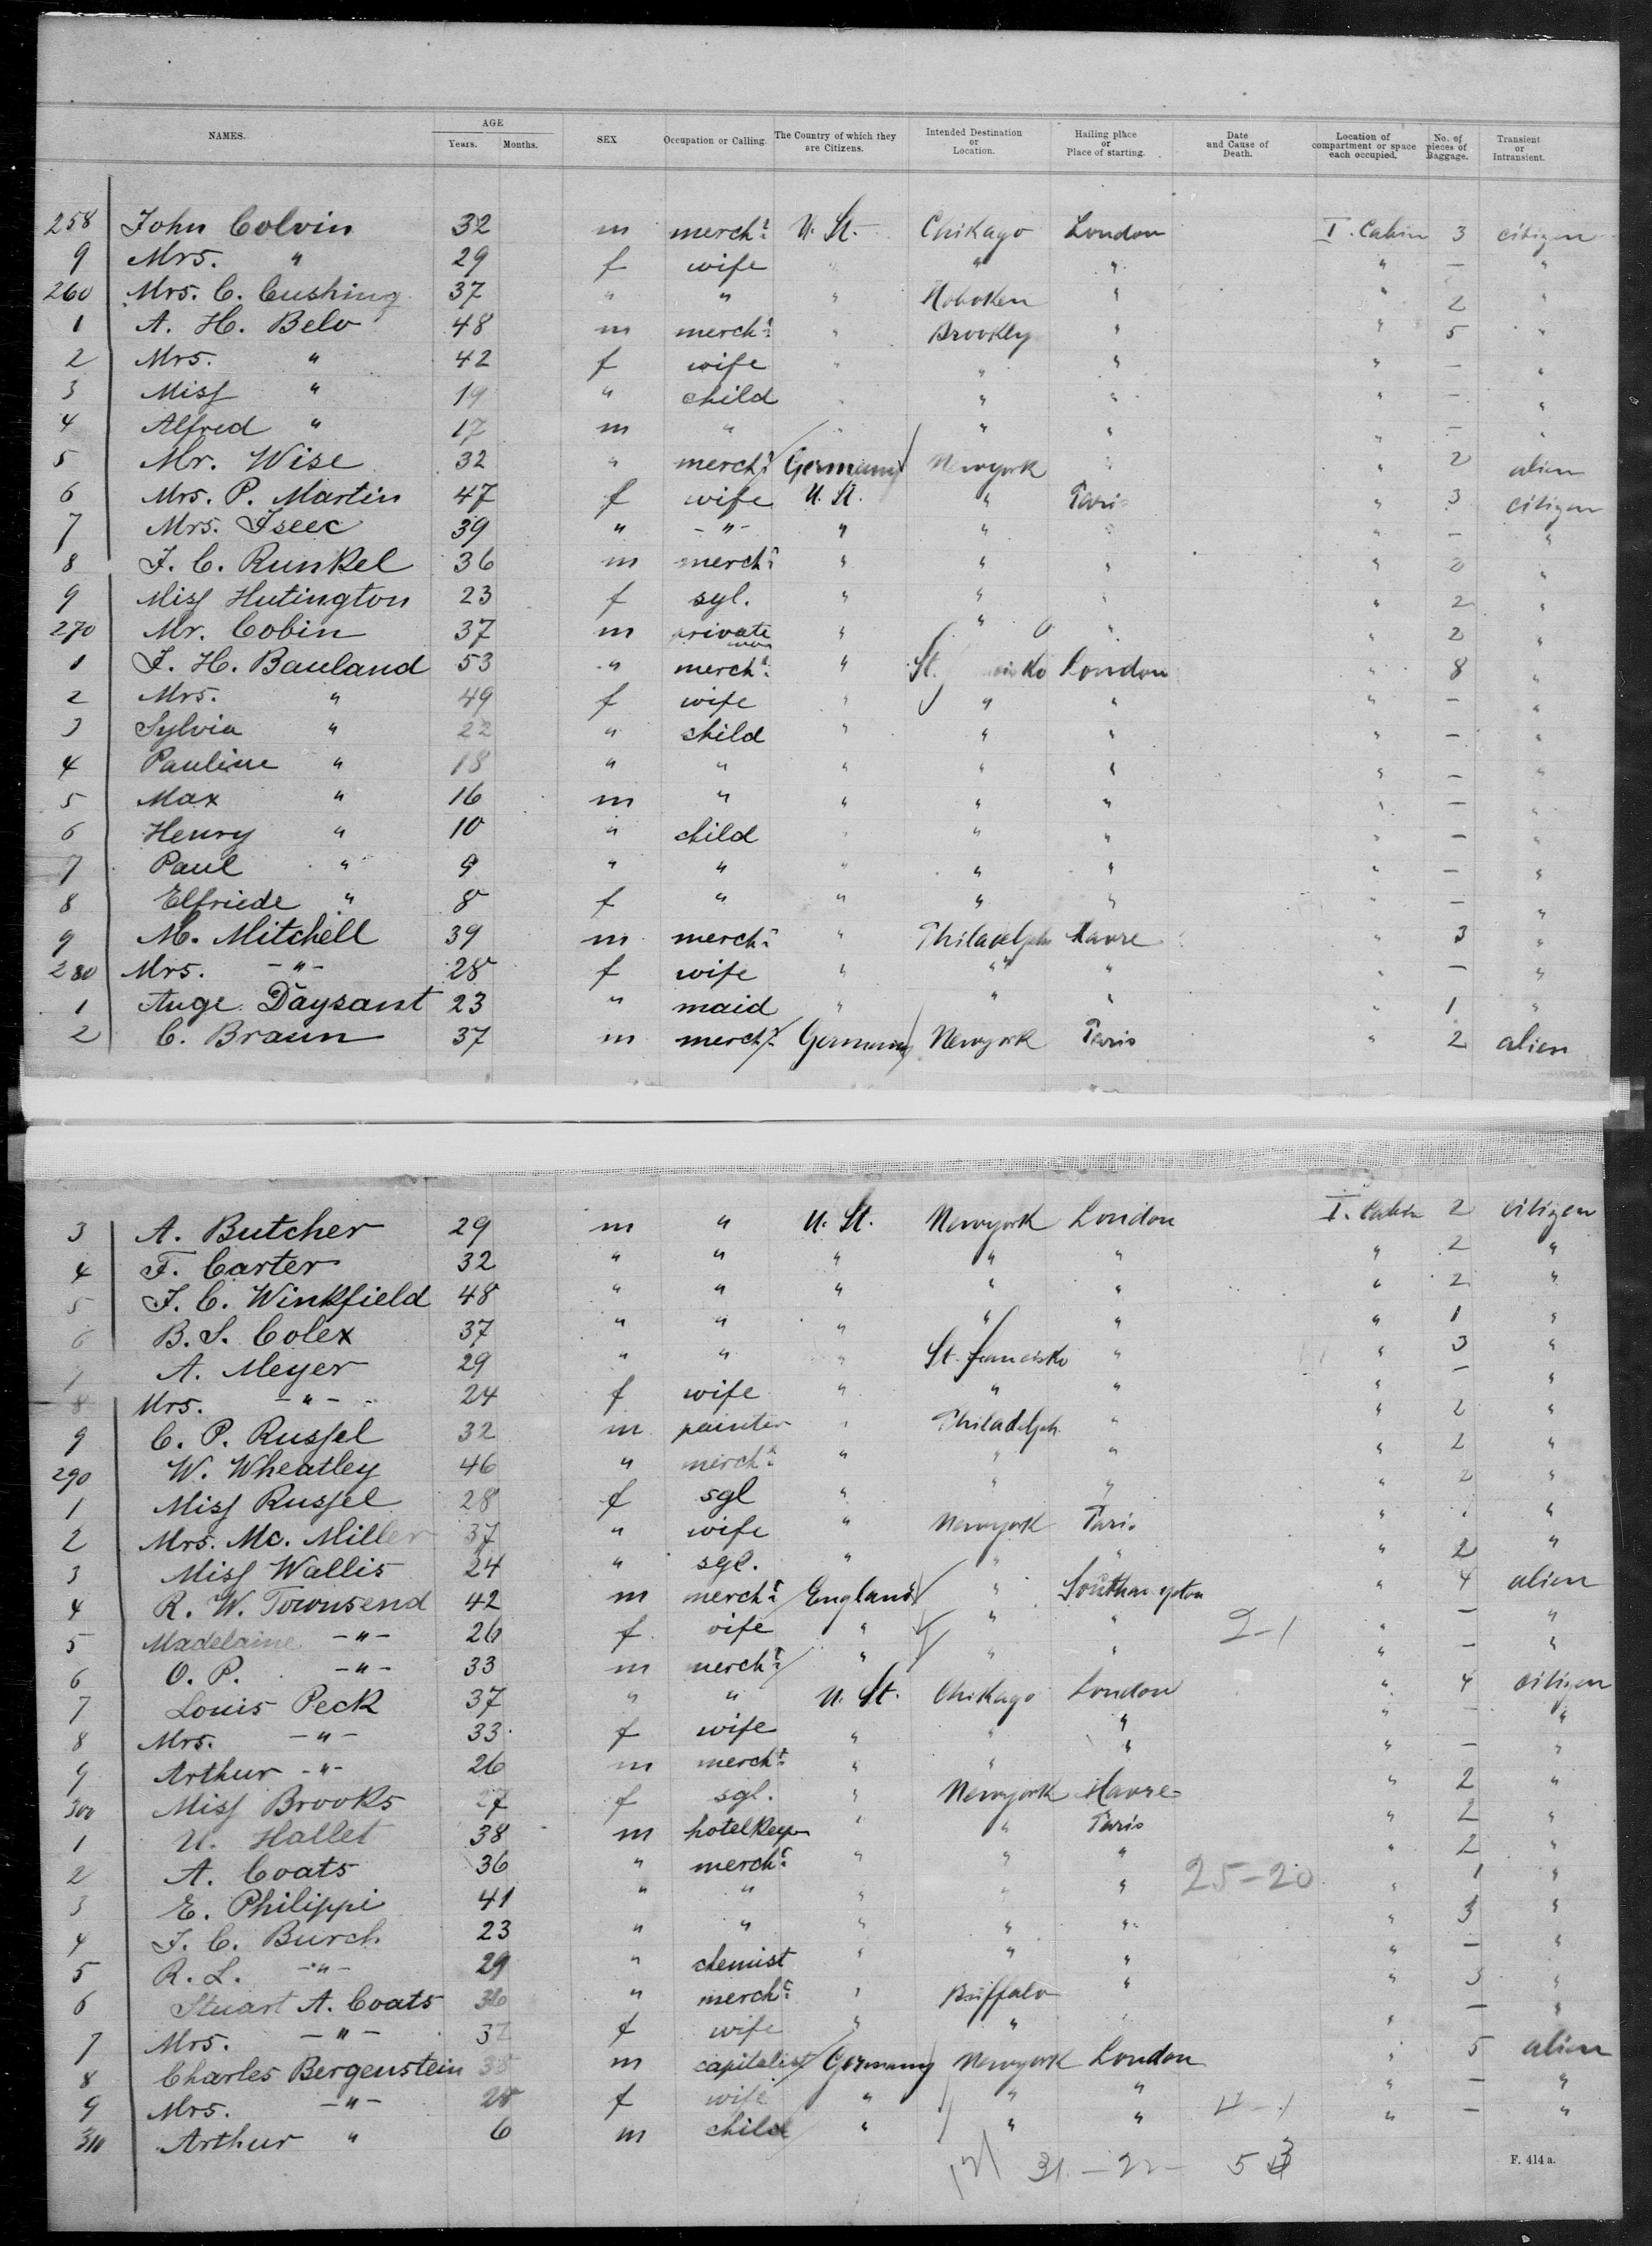 NAMES. AGE Years. Months. SEX Occupation or Calling. The Country of which they are Citizens. Intended Destination or Location. Hailing place or Place of starting. Date and Cause of Death. Location of compartment or space each occupied. No. of pieces of Baggage. Transient or Intransient.
258 John Colvin 32 m mercht U. St. Chikago London I. Cabin 3 citizen
9 Mrs. " 29 f wife " " " " — "
260 Mrs. C. Cushing 37 " " " Hoboken " " 2 "
1 A. H. Belo 48 m mercht " Brookly " " 5 "
2 Mrs. " 42 f wife " " " " — "
3 Miss " 19 " child " " " " — "
4 Alfred " 17 m " " " " " — "
5 Mr. Wise 32 " mercht Germany Newyork " " 2 alien
6 Mrs. P. Martin 47 f wife U. St. " Paris " 3 citizen
7 Mrs. Iseec 39 " - " - " " " " — "
8 J. C. Runkel 36 m mercht " " " " 2 "
9 Miss Hutington 23 f sgl. " " " " 2 "
270 Mr. Cobin 37 m private man " " " " 2 "
1 J. H. Bauland 53 " mercht " St. London " 8 "
2 Mrs. " 49 f wife " " " " — "
3 Sylvia " 22 " child " " " " — "
4 Pauline " 18 " " " " " " — "
5 Max " 16 m " " " " " — "
6 Henry " 10 " child " " " " — "
7 Paul " 9 " " " " " " — "
8 Elfriede " 8 f " " " " " — "
9 M. Mitchell 39 m mercht " Philadelph Havre " 3 "
280 Mrs. - " - 28 f wife " " " " — "
1 Auge Daysant 23 " maid " " " " 1 "
2 C. Braun 37 m mercht Germany Newyork Paris " 2 alien
3 A. Butcher 29 m " U. St. Newyork London I. Cabin 2 citizen
4 F. Carter 32 " " " " " " 2 "
5 J. C. Winkfield 48 " " " " " " 2 "
6 B. S. Colex 37 " " " " " " 1 "
7 A. Meyer 29 " " " St. francisko " " 3 "
8 Mrs. - " - 24 f wife " " " " — "
9 C. P. Russel 32 m painter " Philadelph. " " 2 "
290 W. Wheatley 46 " mercht " " " " 2 "
1 Miss Russel 28 f sgl " " " " 2 "
2 Mrs. Mc. Miller 37 " wife " Newyork Paris " "
3 Miss Wallis 24 " sgl. " " " " 2 "
4 R. W. Townsend 42 m mercht England " Southampton " 4 alien
5 Madelaine - " - 26 f wife " " " 2-1 " — "
6 O. P. - " - 33 m mercht " " " " — "
7 Louis Peck 37 " " U. St. Chikago London " 4 citizen
8 Mrs. - " - 33 f wife " " " " — "
9 Arthur - " - 26 m mercht " " " " — "
300 Miss Brooks 27 f sgl. " Newyork Havre " 2 "
1 U. Hallet 38 m hotelkeep " " Paris " 2 "
2 A. Coats 36 " mercht " " " " 2 "
3 E. Philippi 41 " " " " " 25-20 " 1 "
4 J. C. Burch 23 " " " " " " 3 "
5 R. L. - " - 29 " chemist " " " " — "
6 Stuart A. Coats 36 " mercht " Buffalo " " 3 "
7 Mrs. - " - 32 f wife " " " " — "
8 Charles Bergenstein 38 m capitalist Germany Newyork London " 5 alien
9 Mrs. - " - 28 f wife " " " " — "
310 Arthur " 6 m child " " " 4-1 " — "
31 - 22 - 53
F. 414 a.